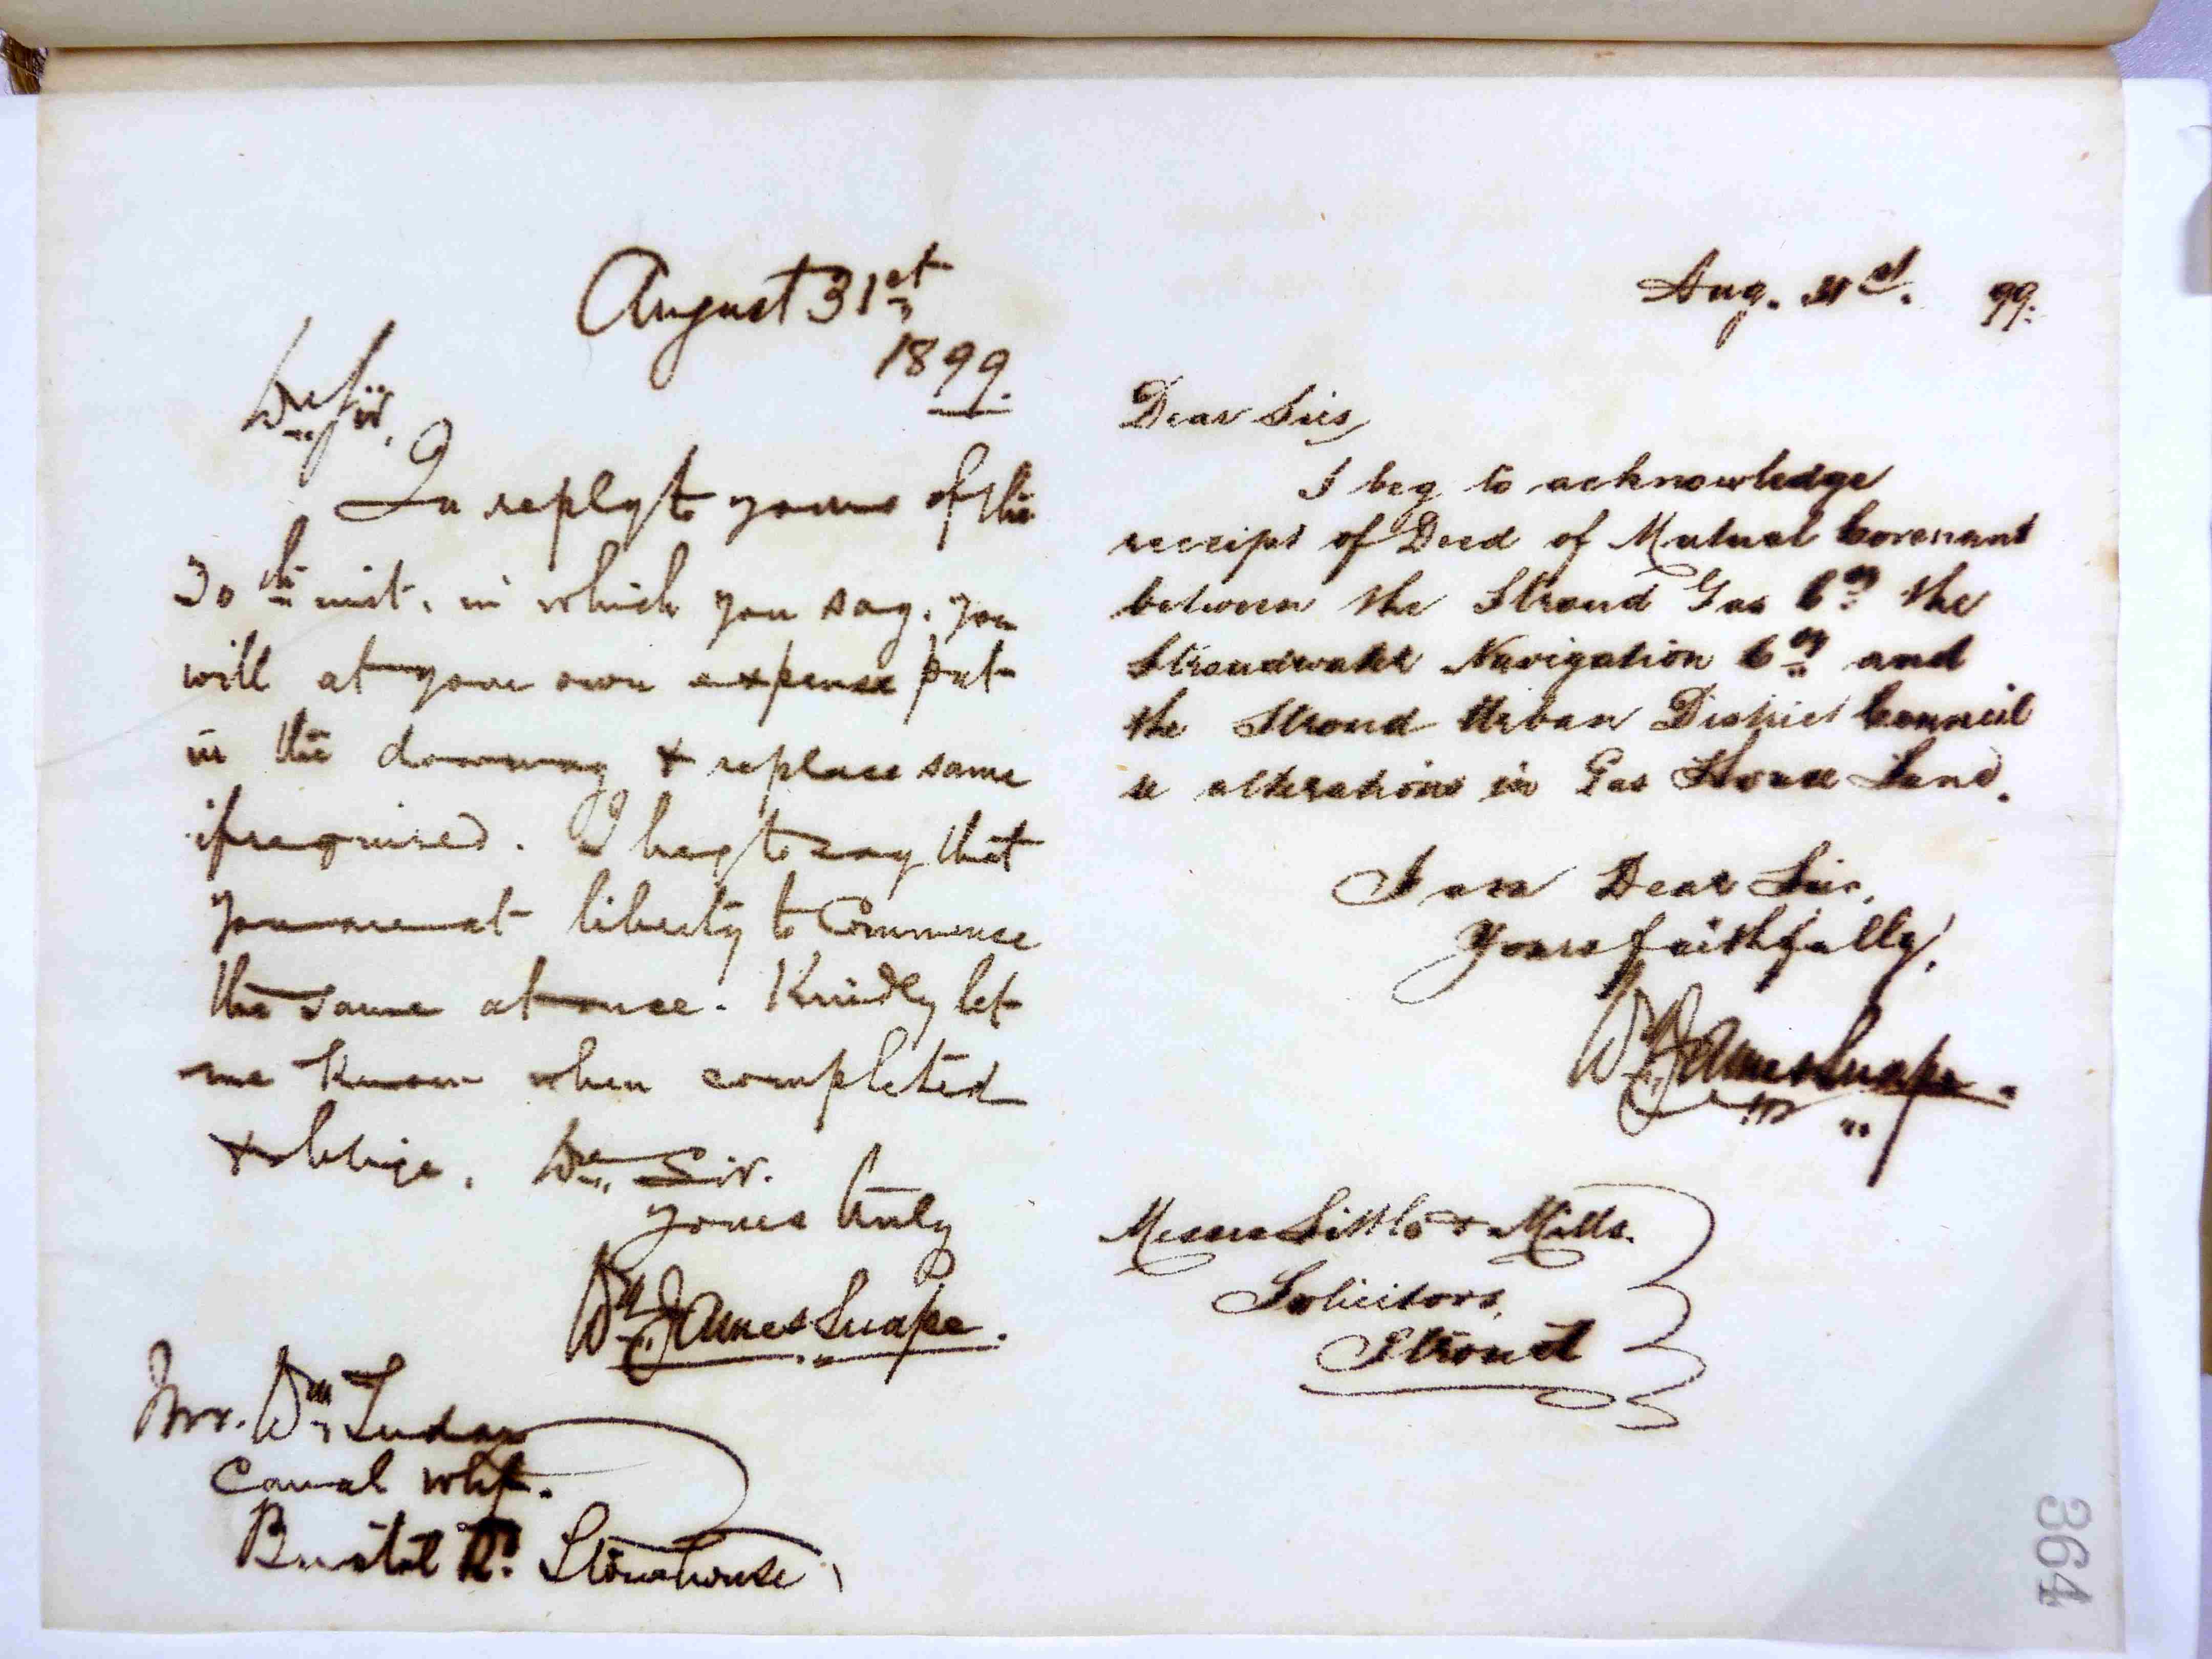 August 31st
1899.
Dr Sir,
In reply to yours of the
30th inst. in which you say. you
will at your own expense put
in the doorway & replace same
if required. I beg to say that
you are at liberty to Commence
the same at once. Kindly let
me know when completed
& oblige. Dr Sir.
yours truly
Wm James Snape.
Mr. Wm
Canal whf.
Bristol Rd. Stonehouse
Aug. 31st. 99.
Dear Sirs,
I beg to acknowledge
receipt of Deed of Mutual Covenant
between the Stroud Gas Coy the
Stroudwater Navigation Coy and
the Stroud Urban District Council
re alterations in Gas House Lane.
I am Dear Sirs,
Yours faithfully,
Wm James Snape.
Messrs Little & Mills.
Solicitors,
Stroud
364